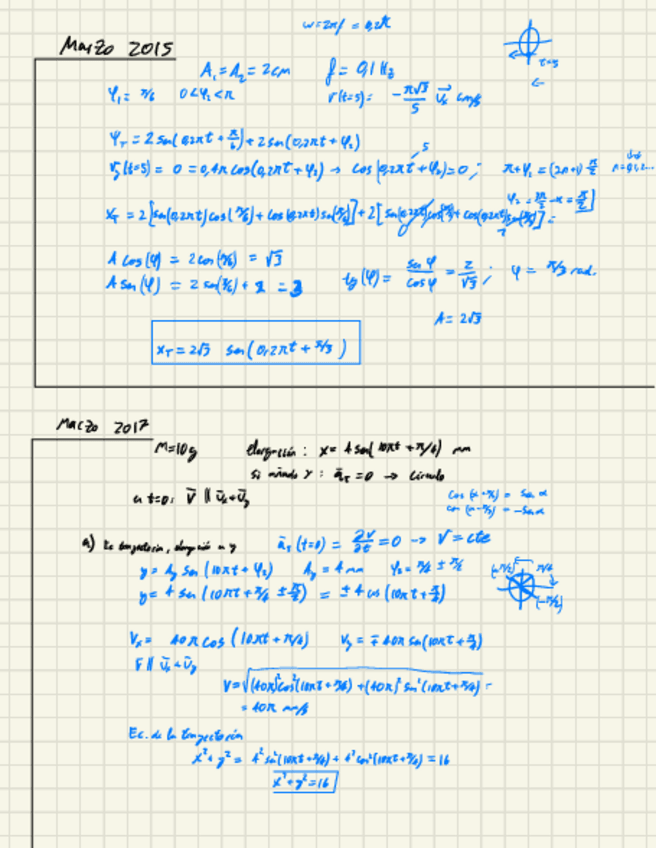 ω=2πf = 0,2π
Marzo 2015
A₁=A₂=2cm f= 0,1 Hz
φ₁= π/6 0<φ₂<π v(t=5)= -π√3/5 u⃗ₓ cm/s
t=5
Ψ_T = 2 sen(0,2πt+π/6)+2 sen(0,2πt+φ₂)
(t=5) = 0 = 0,4π cos(0,2πt+φ₂) → cos(0,2πt+φ₂)=0; π+φ₂ = (2n+1) π/2
5
x_T = 2[sen(0,2πt)cos(π/6)+cos(0,2πt)sen(π/6)]+2[
A cos(φ) = 2cos(π/6) = √3
A sen(φ) = 2 sen(π/6)+ 2 = 3
tg(φ)= sen φ/cos φ = 2/√3; φ= π/3 rad.
A= 2√3
x_T = 2√3 sen(0,2πt+π/3)
Marzo 2017
M=10g elongación: x= 4 sen(10πt+π/4) mm
si añado y: a⃗_T=0 → círculo
a t=0: v⃗ || u⃗ₓ+u⃗ᵧ
cos(α+π/2) = sen α
cos(α-π/2) = -sen α
a) Ec trayectoria, elongación en y a⃗_T(t=0) = ∂v/∂t =0 → V=cte
y= Aᵧ sen(10πt+φ₂) Aᵧ=4 mm φ₂= π/4 ± π/2
y= 4 sen(10πt+π/4 ± π/2) = ±4 cos(10πt+π/4)
(π/2) π/4
(-π/2)
Vₓ= 40π cos(10πt+π/4) Vᵧ= ∓40π sen(10πt+π/4)
v⃗ || u⃗ₓ+u⃗ᵧ
V=√(40π)²cos²(10πt+π/4)+(40π)² sen²(10πt+π/4) =
= 40π mm/s
Ec. de la trayectoria
x²+y²= 4² sen²(10πt+π/4)+4² cos²(10πt+π/4)=16
x²+y²=16